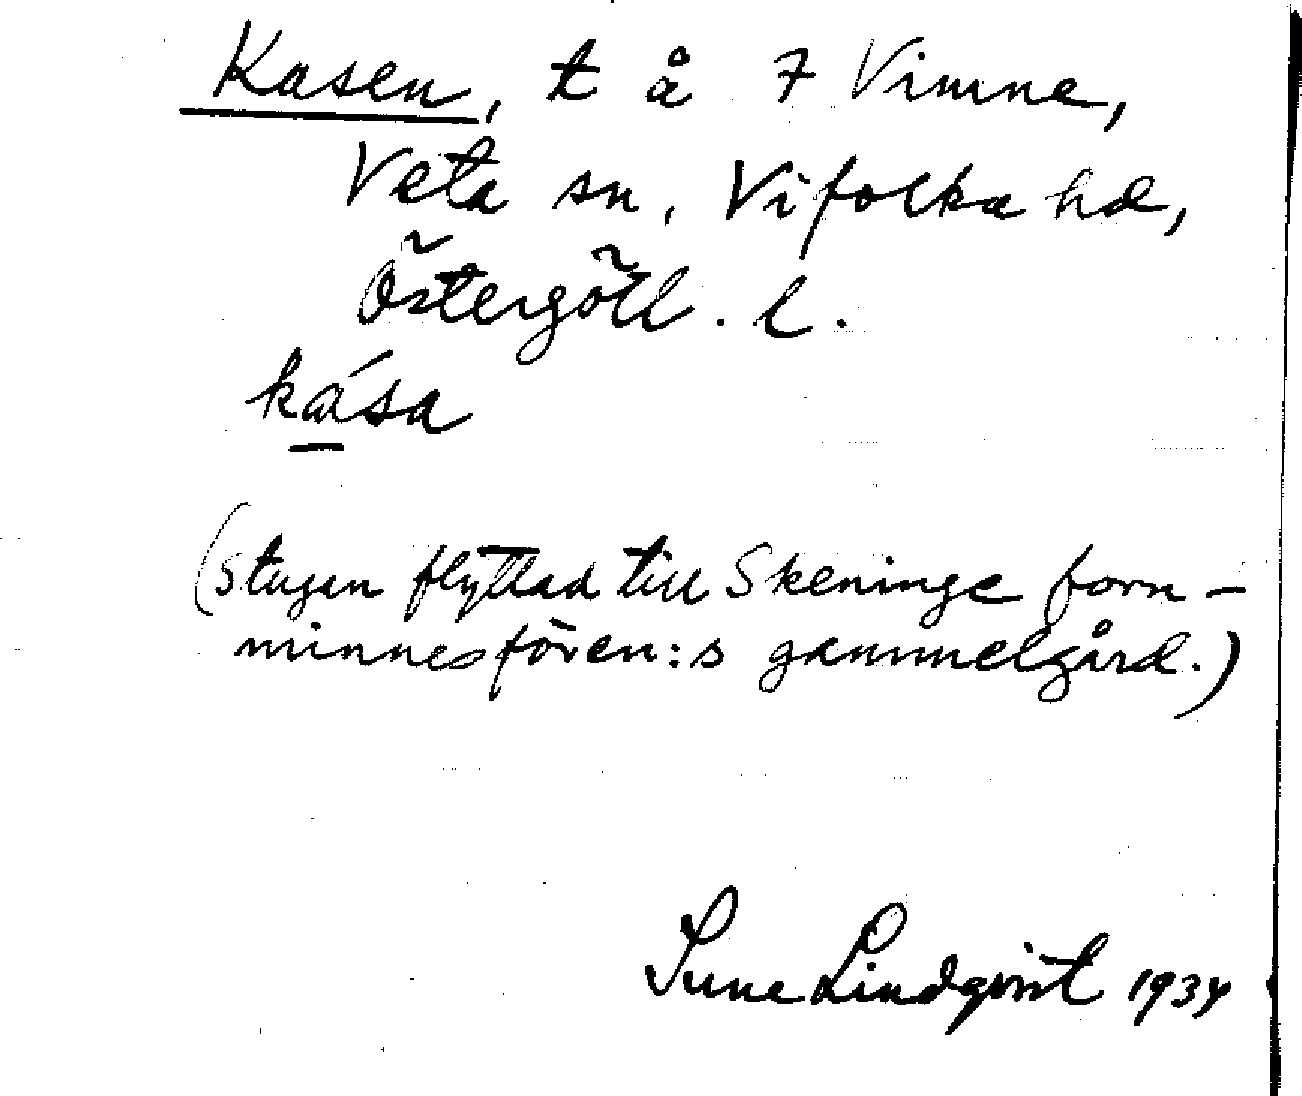 Kasen, t å 7 Vimne,
Veta sn, Vifolka hd,
Östergötl. l.
kása
(stugan flyttad till Skeninge forn-
minnesfören:s gammelgård.)
Sune Lindqvist 1934